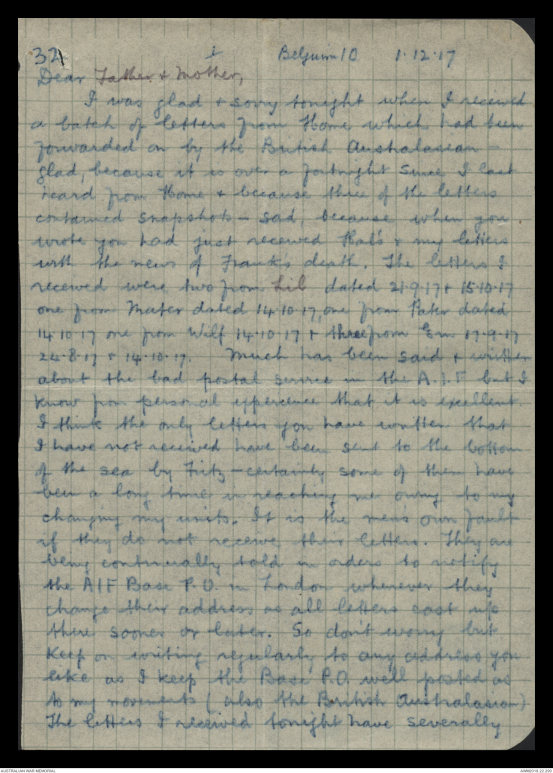 321 i Belgium 10 1.12.17
Dear Father & Mother,
I was glad & sorry tonight when I received
a batch of letters from Home which had been
forwarded on by the British Australasian –
glad, because it is over a fortnight since I last
heard from Home & because three of the letters
contained snapshots – sad, because when you
wrote you had just received Hal's & my letters
with the news of Frank's death. The letters I
received were two from Lil dated 21.9.17 & 15.10.17
one from Mater dated 14.10.17, one from Pater dated
14.10.17 one from Wilf 14.10.17 & three from Em 17.9.17
24.8.17 & 14.10.17. Much has been said & written
about the bad postal service in the A.I.F but I
know from personal experience that it is excellent.
I think the only letters you have written that
I have not received have been sent to the bottom
of the sea by Fritz – certainly some of them have
been a long time in reaching me owing to my
changing my units. It is the men's own fault
if they do not receive their letters. They are
being continually told in orders to notify
the AIF Base P.O. in London whenever they
change their address as all letters cast up
there sooner or later. So don't worry but
keep on writing regularly to any address you
like as I keep the Base P.O. well posted as
to my movements (also the British Australasian)
The letters I received tonight have severally
AUSTRALIAN WAR MEMORIAL